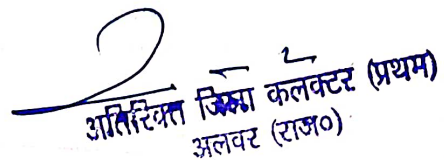 अतिरिक्त जिला कलक्टर (प्रथम)
अलवर (राज०)